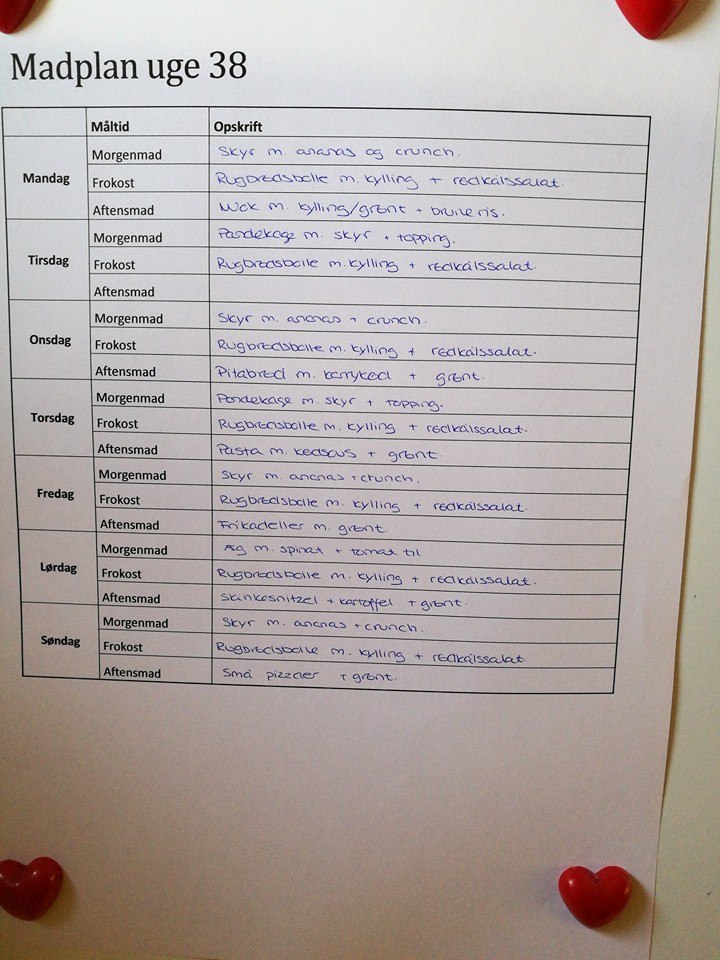 Madplan uge 38
Måltid Opskrift
Mandag
Morgenmad Skyr m. ananas og crunch.
Frokost Rugbrødsbolle m. kylling + rødkålssalat.
Aftensmad Wok m. kylling/grønt + brune ris.
Tirsdag
Morgenmad Pandekage m. skyr + topping.
Frokost Rugbrødsbolle m. kylling + rødkålssalat.
Aftensmad
Onsdag
Morgenmad Skyr m. ananas + crunch.
Frokost Rugbrødsbolle m. kylling + rødkålssalat.
Aftensmad Pitabrød m. karrykød + grønt.
Torsdag
Morgenmad Pandekage m. skyr + topping.
Frokost Rugbrødsbolle m. kylling + rødkålssalat.
Aftensmad Pasta m. kødsovs + grønt.
Fredag
Morgenmad Skyr m. ananas + crunch.
Frokost Rugbrødsbolle m. kylling + rødkålssalat.
Aftensmad Frikadeller m. grønt.
Lørdag
Morgenmad Æg m. spinat + tomat til
Frokost Rugbrødsbolle m. kylling + rødkålssalat.
Aftensmad Skinkesnitzel + kartoffel + grønt.
Søndag
Morgenmad Skyr m. ananas + crunch.
Frokost Rugbrødsbolle m. kylling + rødkålssalat.
Aftensmad Små pizzaer + grønt.